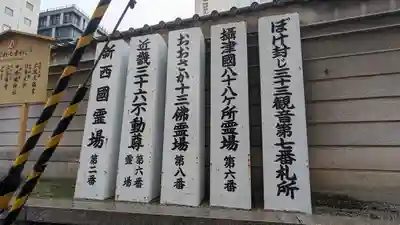 ぼけ封じ三十三観音第七番札所
攝津國八十八ケ所霊場 第六番
おおさか十三佛霊場 第八番
近畿三十六不動尊霊場 第六番
新西國霊場 第二番